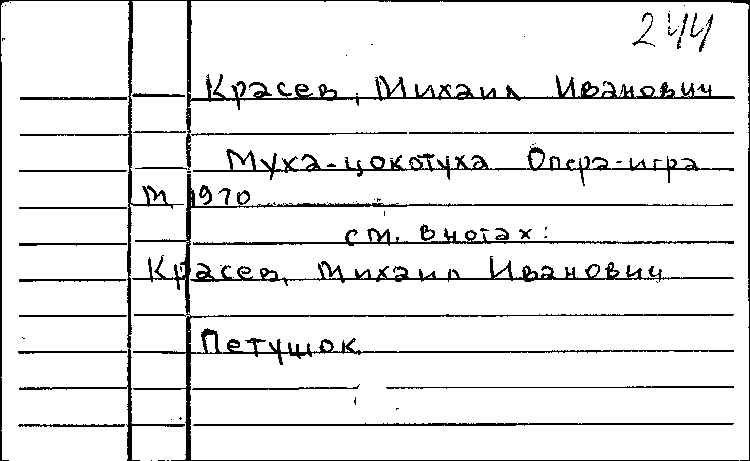 244
Красев, Михаил Иванович
Муха-цокотуха Опера-игра
М 1970
см. в нотах:
Красев, Михаил Иванович
Петушок